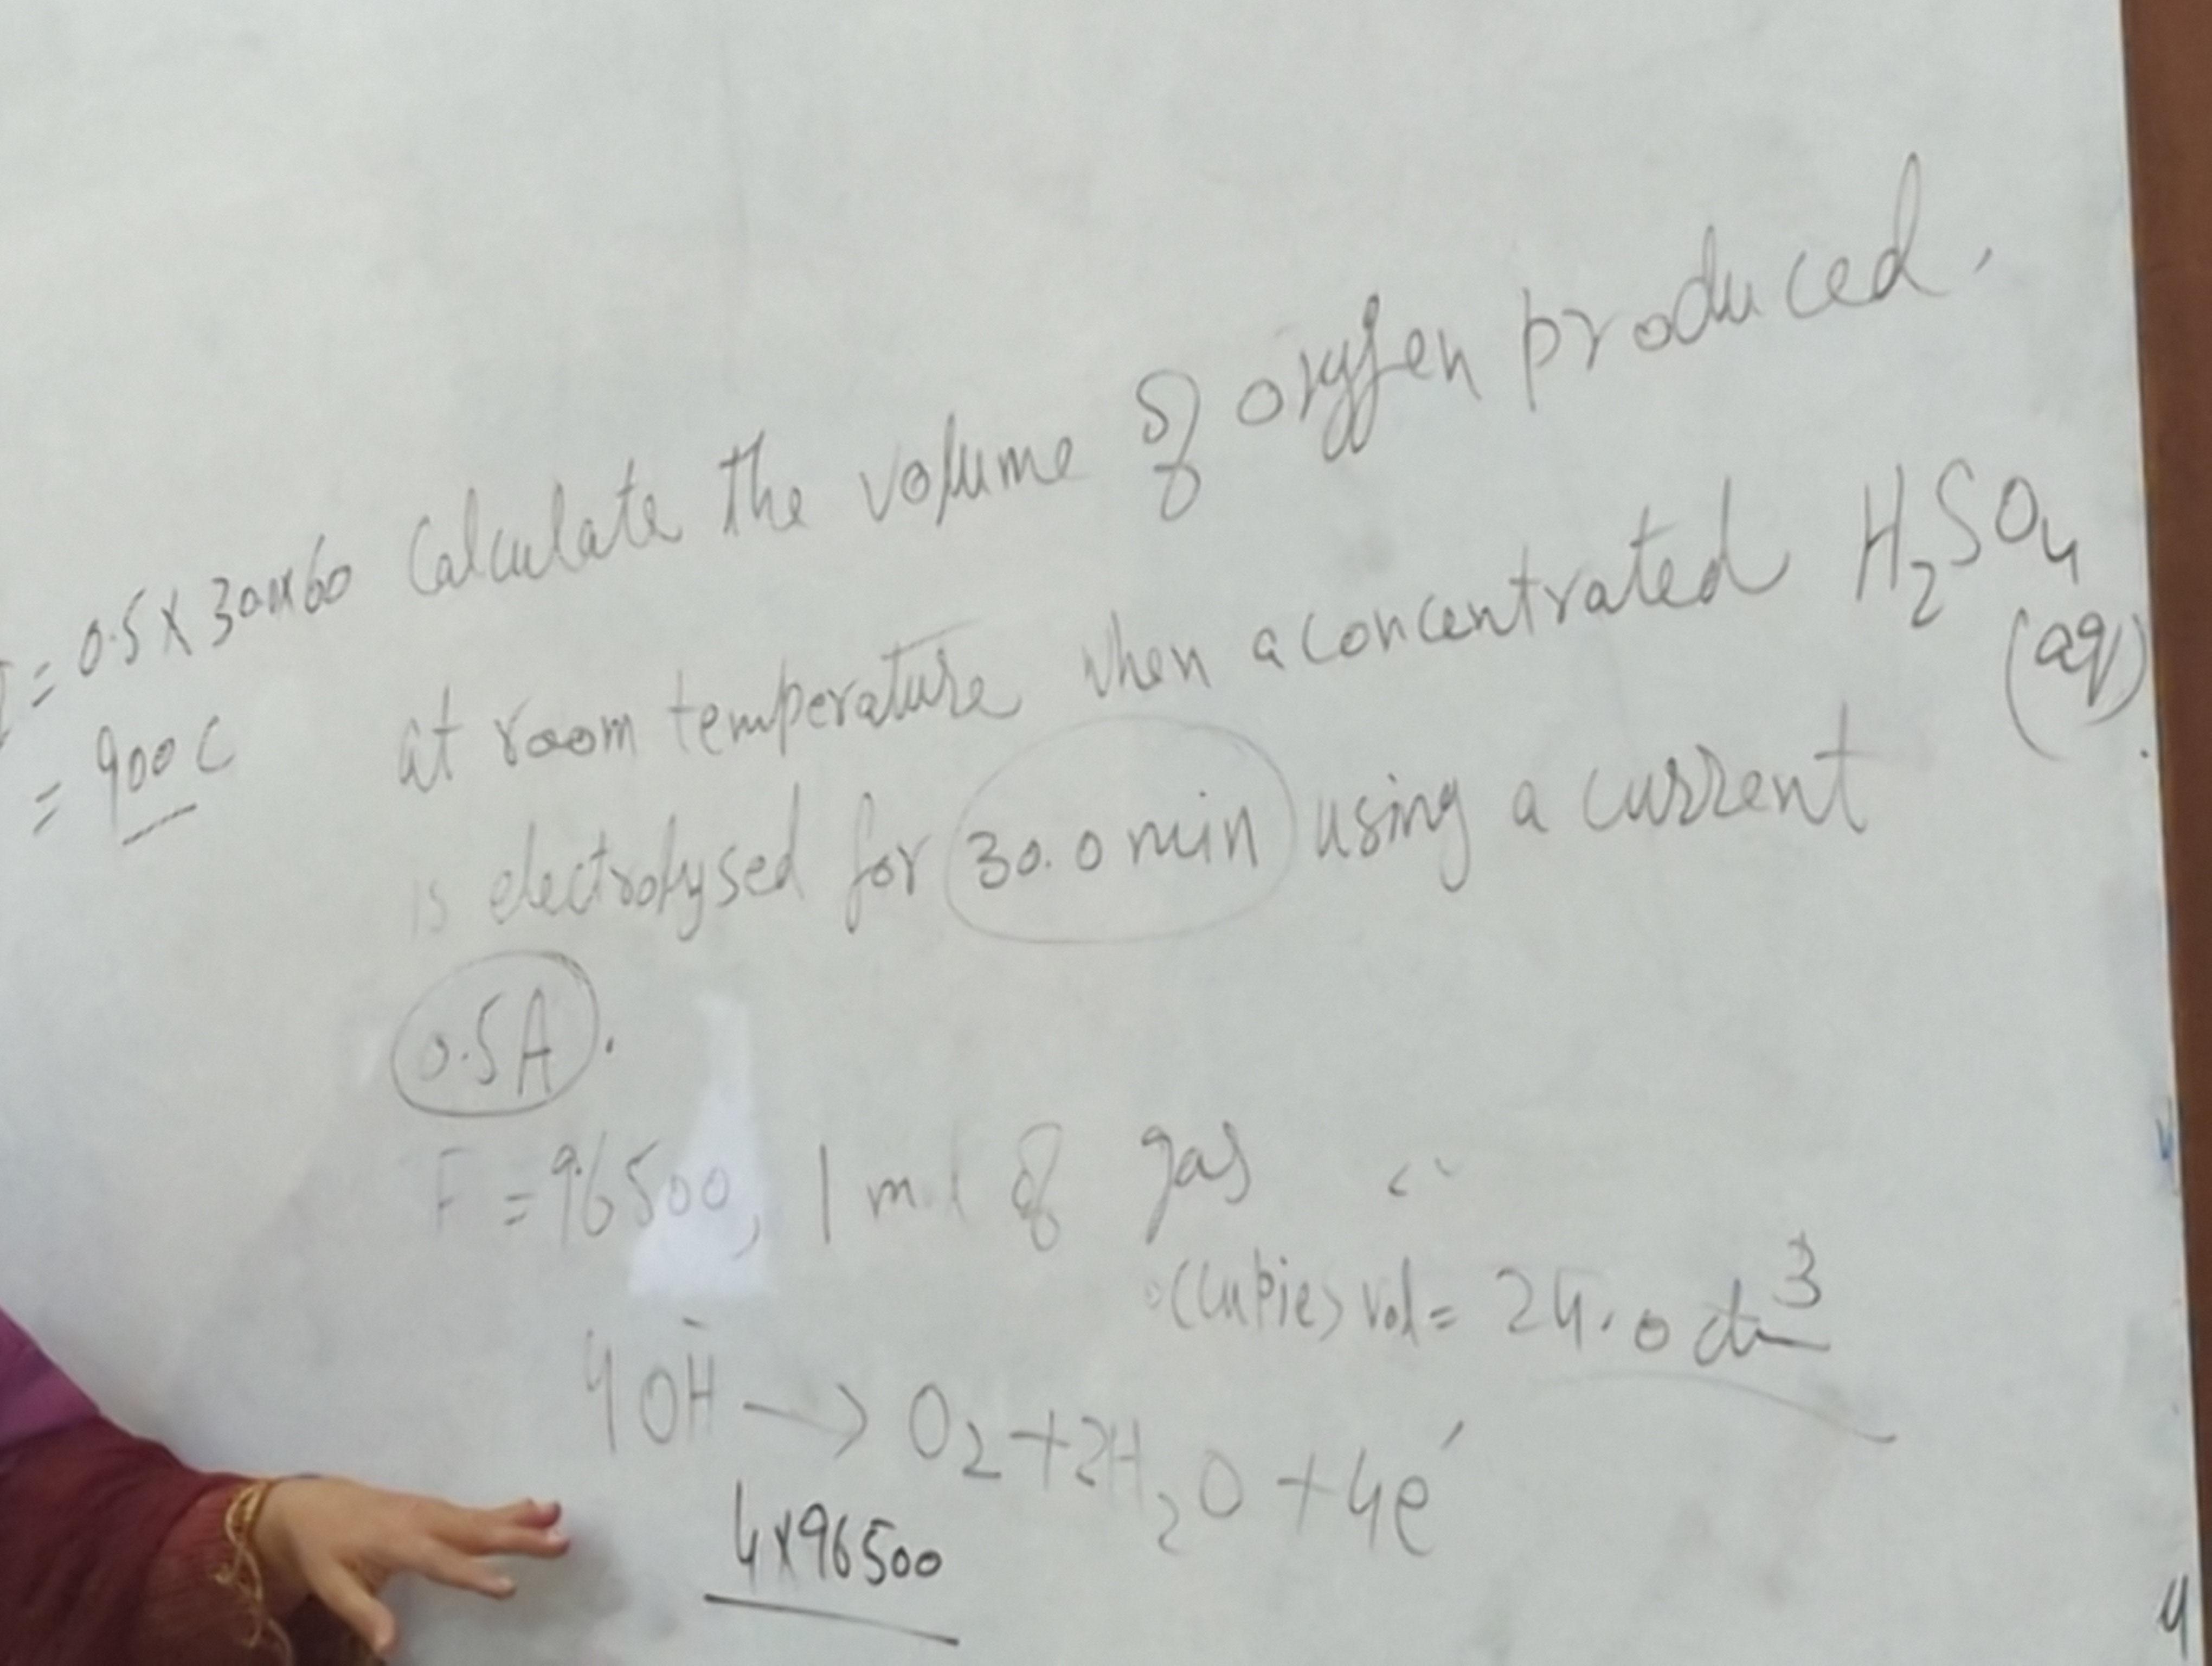 Calculate the volume of oxygen produced.
at room temperature when a concentrated H₂SO₄ (aq).
is electrolysed for 30.0 min using a current
0.5A.
= 0.5 X 30x60
= 900 C
F = 96500, 1 mol of gas
occupies vol = 24.0 dm³
4OH⁻ → O₂ + 2H₂O + 4e⁻
4x96500